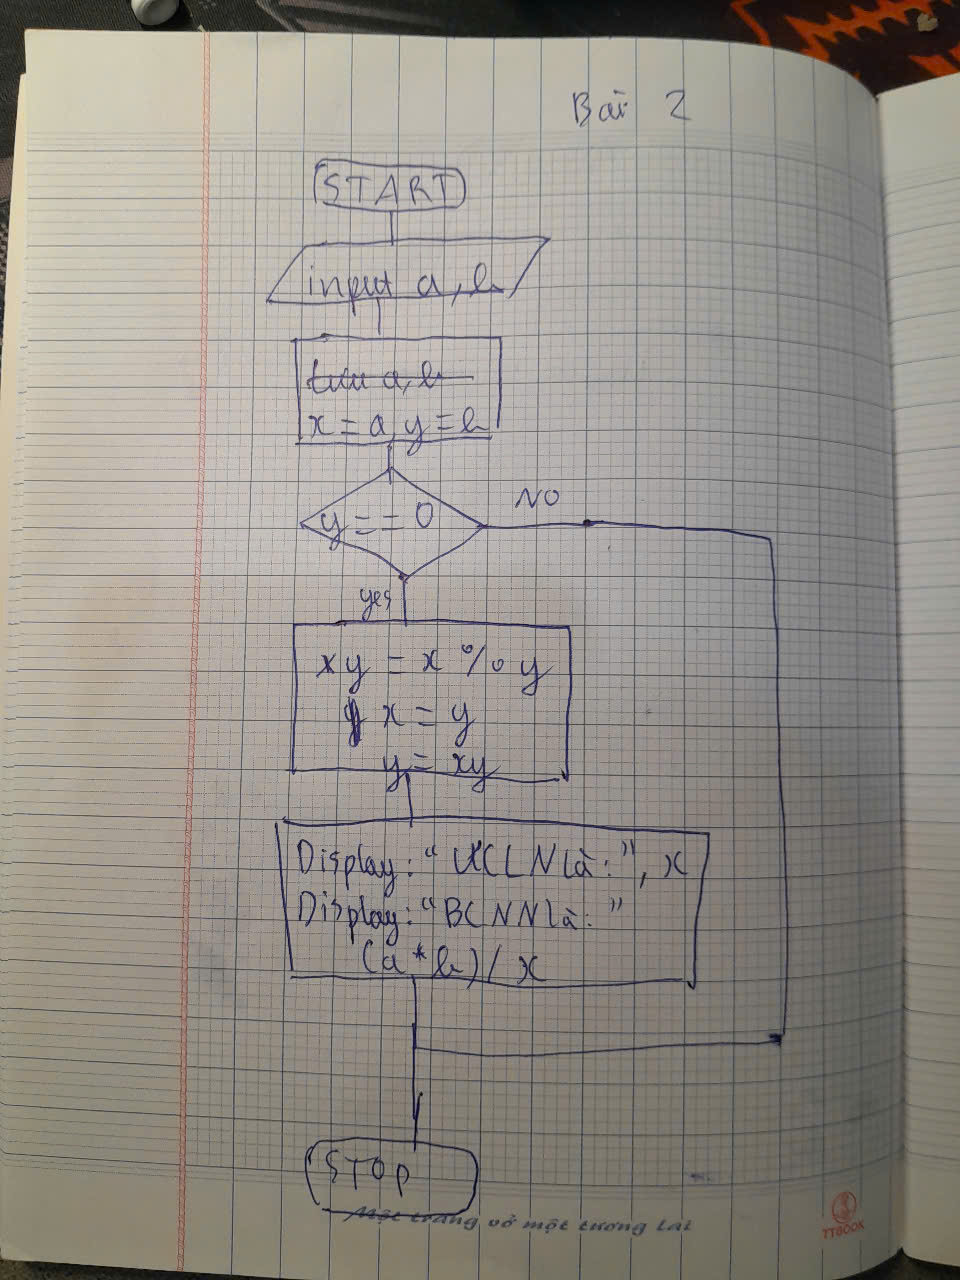 Bài 2
START
input a, b
x = a, y = b
y = = 0
NO
yes
xy = x % y
x = y
y = xy
Display: "ƯCLN là:", x
Display: "BCNN là:"
(a * b) / x
STOP
Một trang vở một tương lai
TTBOOK